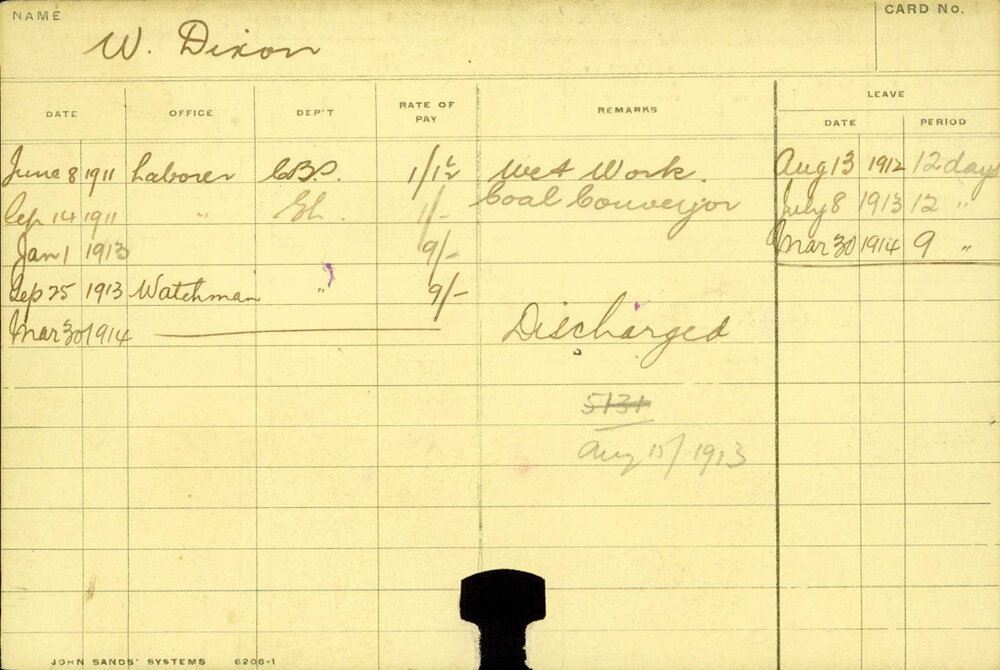 NAME
CARD No.
W. Dixon
DATE OFFICE DEP'T RATE OF PAY REMARKS LEAVE
DATE PERIOD
June 8 1911 Laborer 1/1½ Wet Work. Aug 13 1912 12 days
Sep 14 1911 " 1/- Coal Conveyor July 8 1913 12 "
Jan 1 1913 9/- Mar 30 1914 9 "
Sep 25 1913 Watchman " 9/-
Mar 30 1914 Discharged
5131
Aug 15/1913
JOHN SANDS' SYSTEMS 6206-1